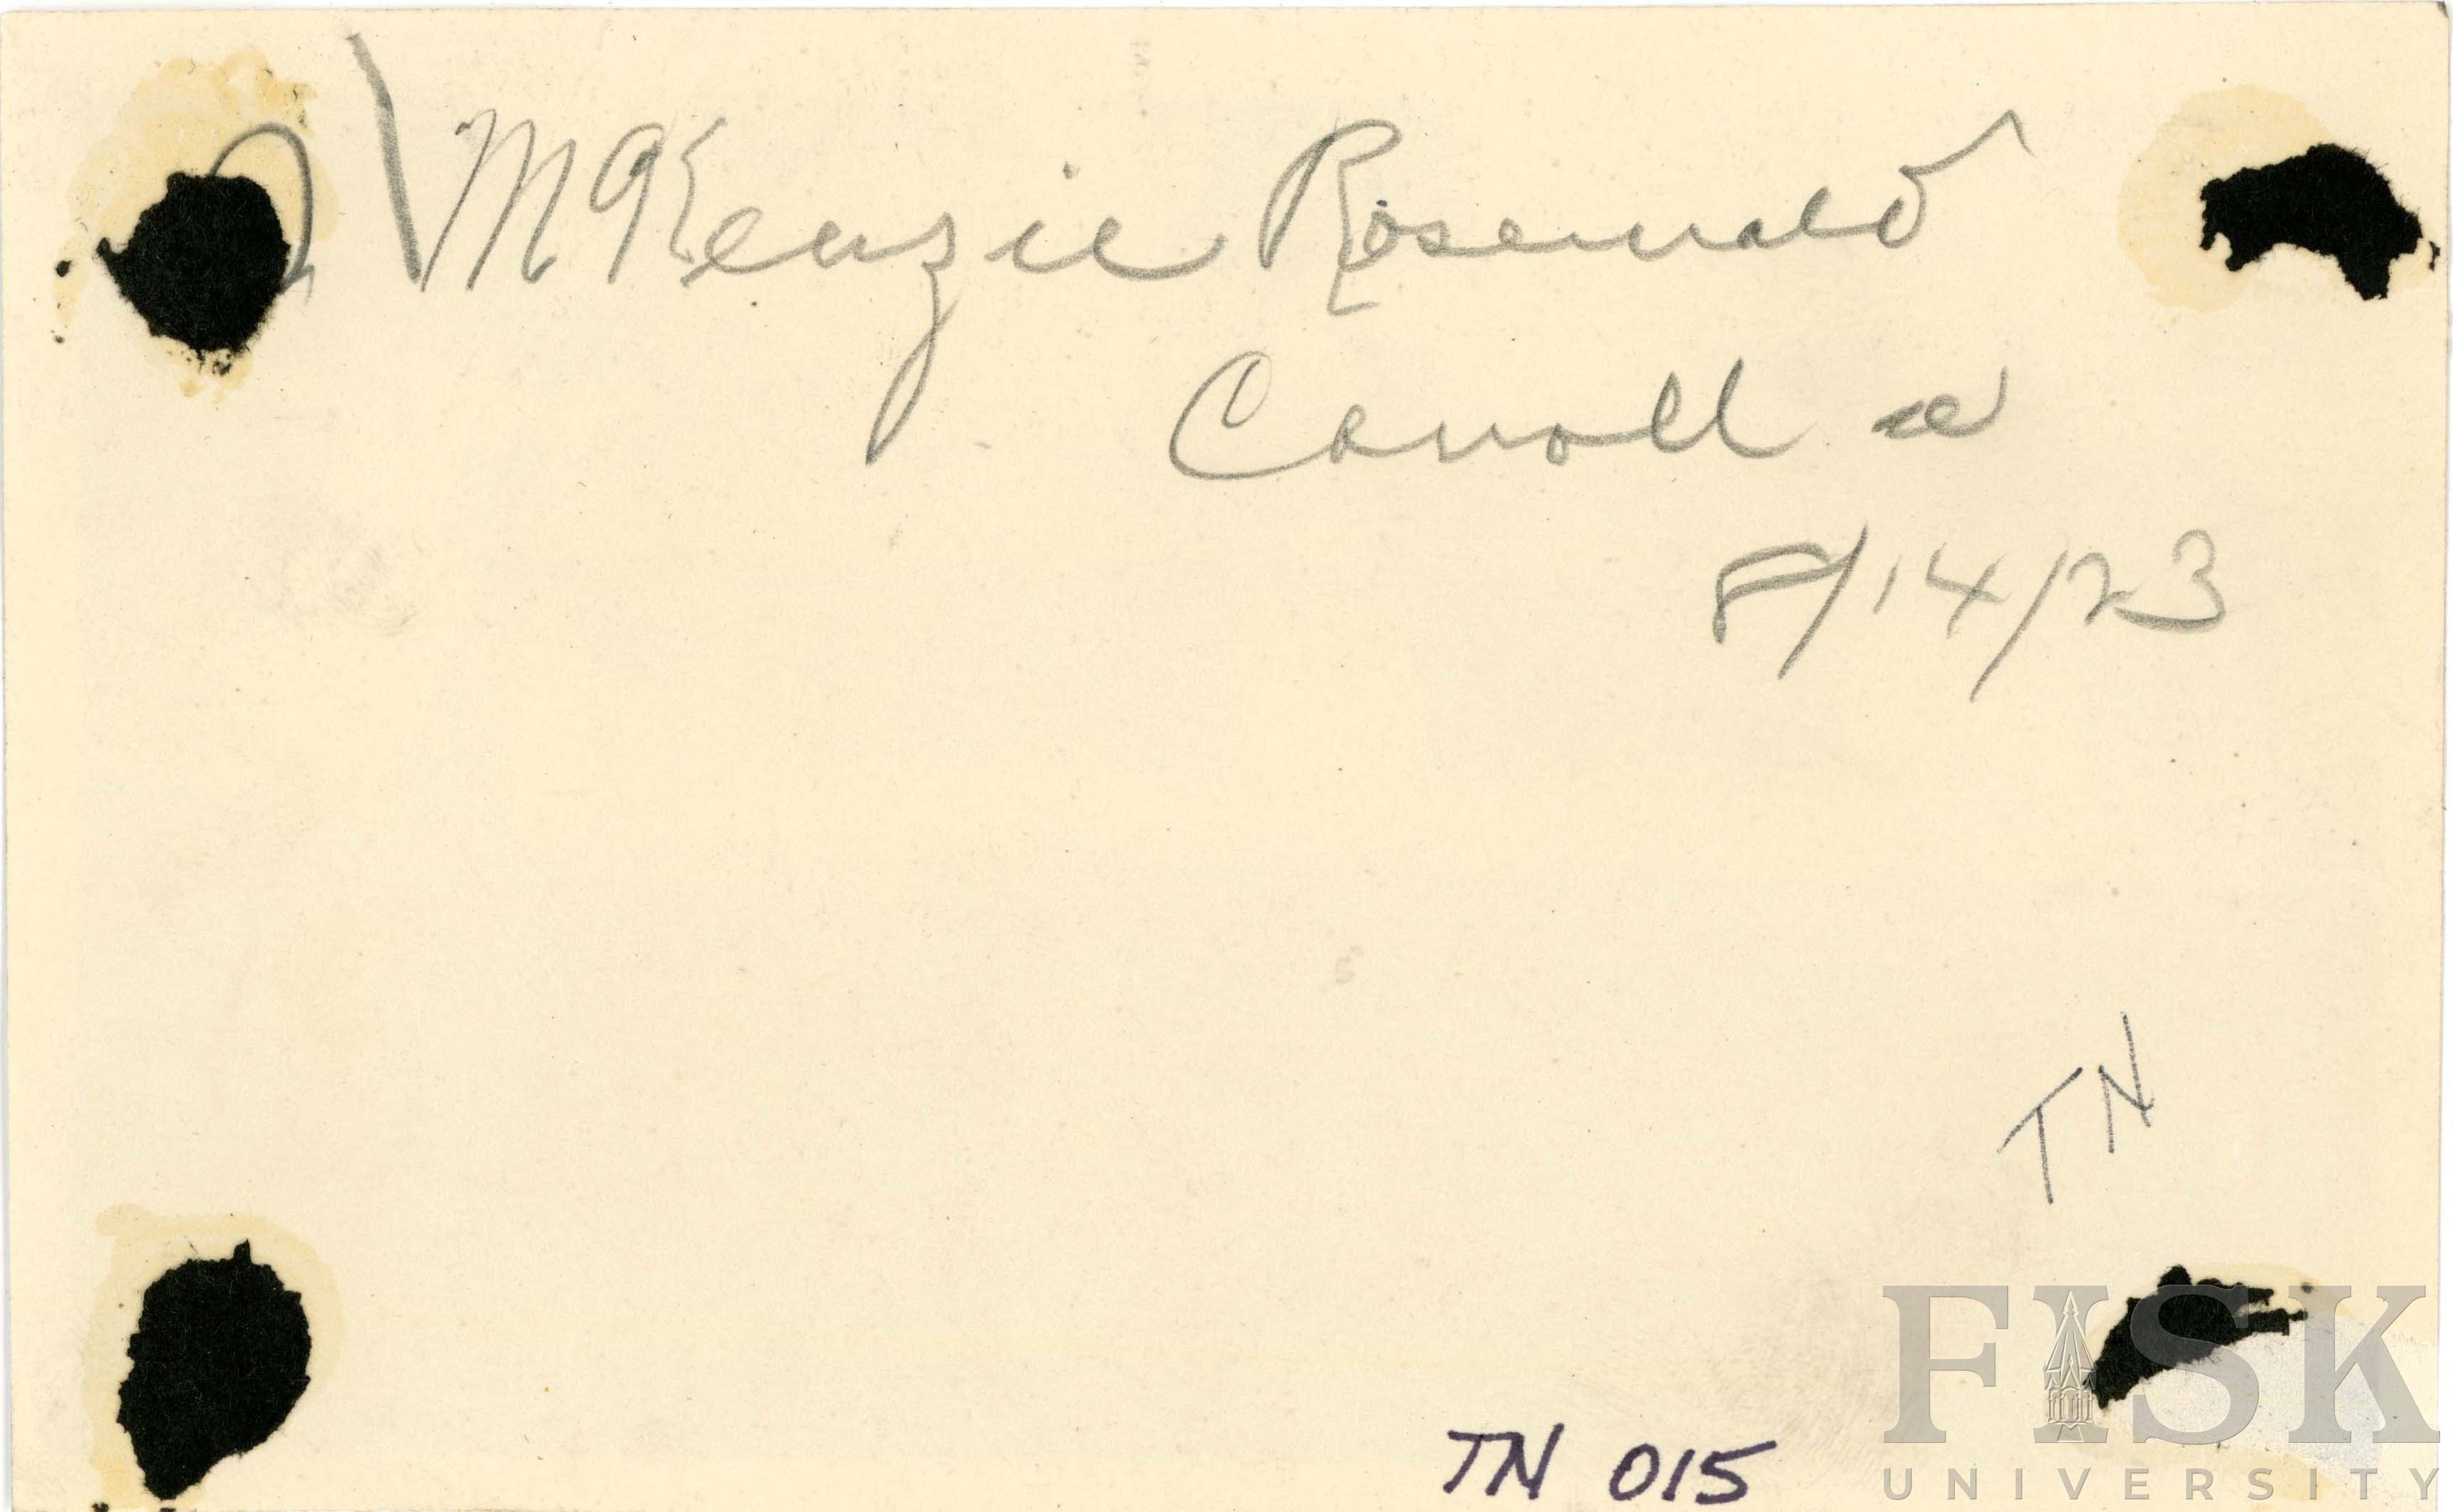 McKenzie Rosenwald
Carroll Co
8/14/23
TN
TN 015
FISK
UNIVERSITY